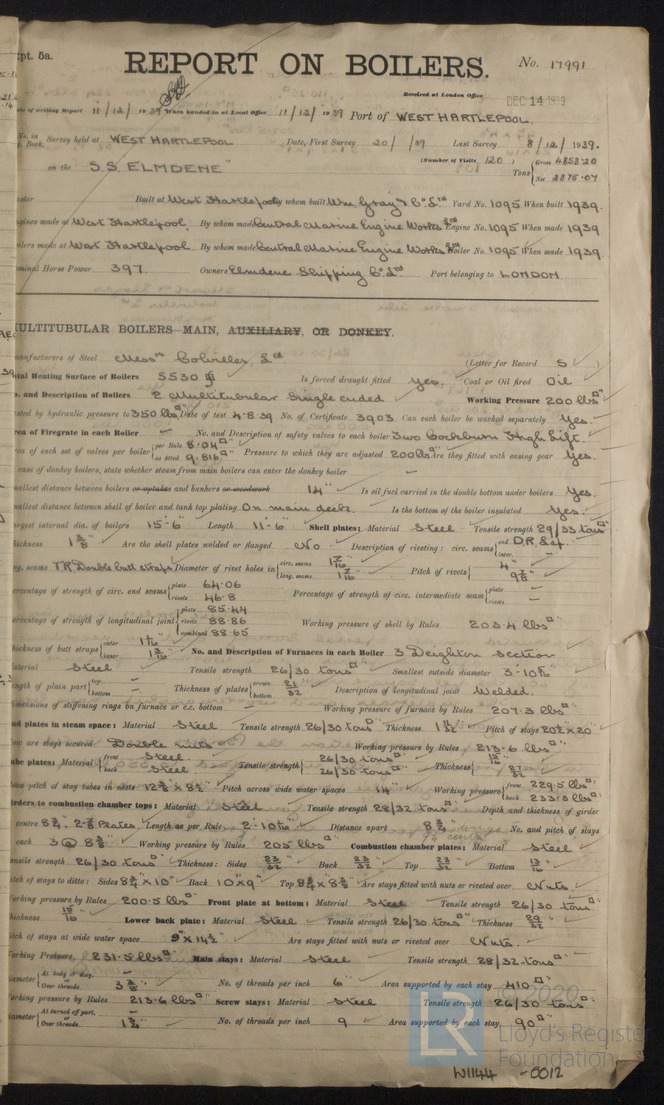 pt. 5a.
REPORT ON BOILERS.
No. 17991
Received at London Office DEC 14 1939
te of writing Report 11/12/1939 When handed in at Local Office 11/12/1939 Port of WEST HARTLEPOOL.
No. in Book. Survey held at WEST HARTLEPOOL Date, First Survey 20/ /39 Last Survey 8/12/1939.
(Number of Visits 120) Tons Gross 4853.20
on the S.S. ELMDENE" Net 2876.07
Built at West Hartlepool By whom built Wm. Gray & Co. Ltd Yard No. 1095 When built 1939.
ngines made at West Hartlepool, By whom made Central Marine Engine Works Ltd Engine No. 1095 When made 1939
oilers made at West Hartlepool By whom made Central Marine Engine Works Ltd Boiler No. 1095 When made 1939
ominal Horse Power 397. Owners Elmdene Shipping Co. Ltd Port belonging to LONDON.
ULTITUBULAR BOILERS—MAIN, AUXILIARY, OR DONKEY.
anufacturers of Steel Messrs Colvilles, Ltd (Letter for Record S)
otal Heating Surface of Boilers 5530 Is forced draught fitted Yes. Coal or Oil fired Oil
o. and Description of Boilers 2 Multitubular Single ended Working Pressure 200 lbs□"
sted by hydraulic pressure to 350 lbs□" Date of test 4.8.39 No. of Certificate 3903 Can each boiler be worked separately Yes.
rea of Firegrate in each Boiler — No. and Description of safety valves to each boiler Two Cockburn High Lift.
rea of each set of valves per boiler per Rule 8.04□" as fitted 9.816□" Pressure to which they are adjusted 200 lbs□" Are they fitted with easing gear Yes.
case of donkey boilers, state whether steam from main boilers can enter the donkey boiler —
mallest distance between boilers or uptakes and bunkers or woodwork 14" Is oil fuel carried in the double bottom under boilers Yes.
mallest distance between shell of boiler and tank top plating On main deck. Is the bottom of the boiler insulated Yes.
argest internal dia. of boilers 15'-6" Length 11'-6" Shell plates: Material Steel Tensile strength 29/33 tons□"
hickness 1 3/8" Are the shell plates welded or flanged No Description of riveting: circ. seams end D.R. Lap. inter. —
ng. seams T.R. Double butt straps Diameter of rivet holes in circ. seams 1 7/16" long. seams 1 7/16" Pitch of rivets 4" 9 7/8"
ercentage of strength of circ. end seams plate 64.06 rivets 46.8 Percentage of strength of circ. intermediate seam plate — rivets —
ercentage of strength of longitudinal joint plate 85.44 rivets 88.86 combined 88.65 Working pressure of shell by Rules 203.4 lbs□"
hickness of butt straps outer 1 1/16" inner 1 3/16" No. and Description of Furnaces in each Boiler 3 Deighton section
aterial Steel Tensile strength 26/30 tons□" Smallest outside diameter
ength of plain part top — bottom — Thickness of plates crown bottom 21/32" Description of longitudinal joint Welded.
imensions of stiffening rings on furnace or c.c. bottom — Working pressure of furnace by Rules 207.3 lbs□"
nd plates in steam space: Material Steel Tensile strength 26/30 tons□" Thickness 1 11/32" Pitch of stays 20½" x 20"
ow are stays secured Double nuts Working pressure by Rules 213.6 lbs□"
ube plates: Material front Steel back Steel Tensile strength 26/30 tons□" 26/30 tons□" Thickness
ean pitch of stay tubes in nests Pitch across wide water spaces 14" Working pressure front 229.5 lbs□" back 233.3 lbs□"
irders to combustion chamber tops: Material Steel Tensile strength 28/32 tons□" Depth and thickness of girder
centre Length as per Rule Distance apart 8¾" No. and pitch of stays
each 3 @ Working pressure by Rules 205 lbs□" Combustion chamber plates: Material Steel
ensile strength 26/30 tons□" Thickness: Sides 23/32" Back 23/32" Top 23/32" Bottom 13/16"
itch of stays to ditto: Sides 8¾" x 10" Back 10" x 9" Top Are stays fitted with nuts or riveted over Nuts.
orking pressure by Rules 200.5 lbs□" Front plate at bottom: Material Steel Tensile strength 26/30 tons□"
hickness 15/16" Lower back plate: Material Steel Tensile strength 26/30 tons□" Thickness 29/32"
itch of stays at wide water space 9" x 14½" Are stays fitted with nuts or riveted over Nuts.
orking Pressure 231.5 lbs□" Main stays: Material Steel Tensile strength 28/32 tons□"
iameter At body of stay, or Over threads. No. of threads per inch 6 Area supported by each stay 410□"
orking pressure by Rules 213.6 lbs□" Screw stays: Material Steel Tensile strength 26/30 tons□"
iameter At turned off part, or Over threads. 1¾" No. of threads per inch 9 Area supported by each stay 90□"
© 2020
Lloyd's Register
Foundation
LR
W1144 - 0012